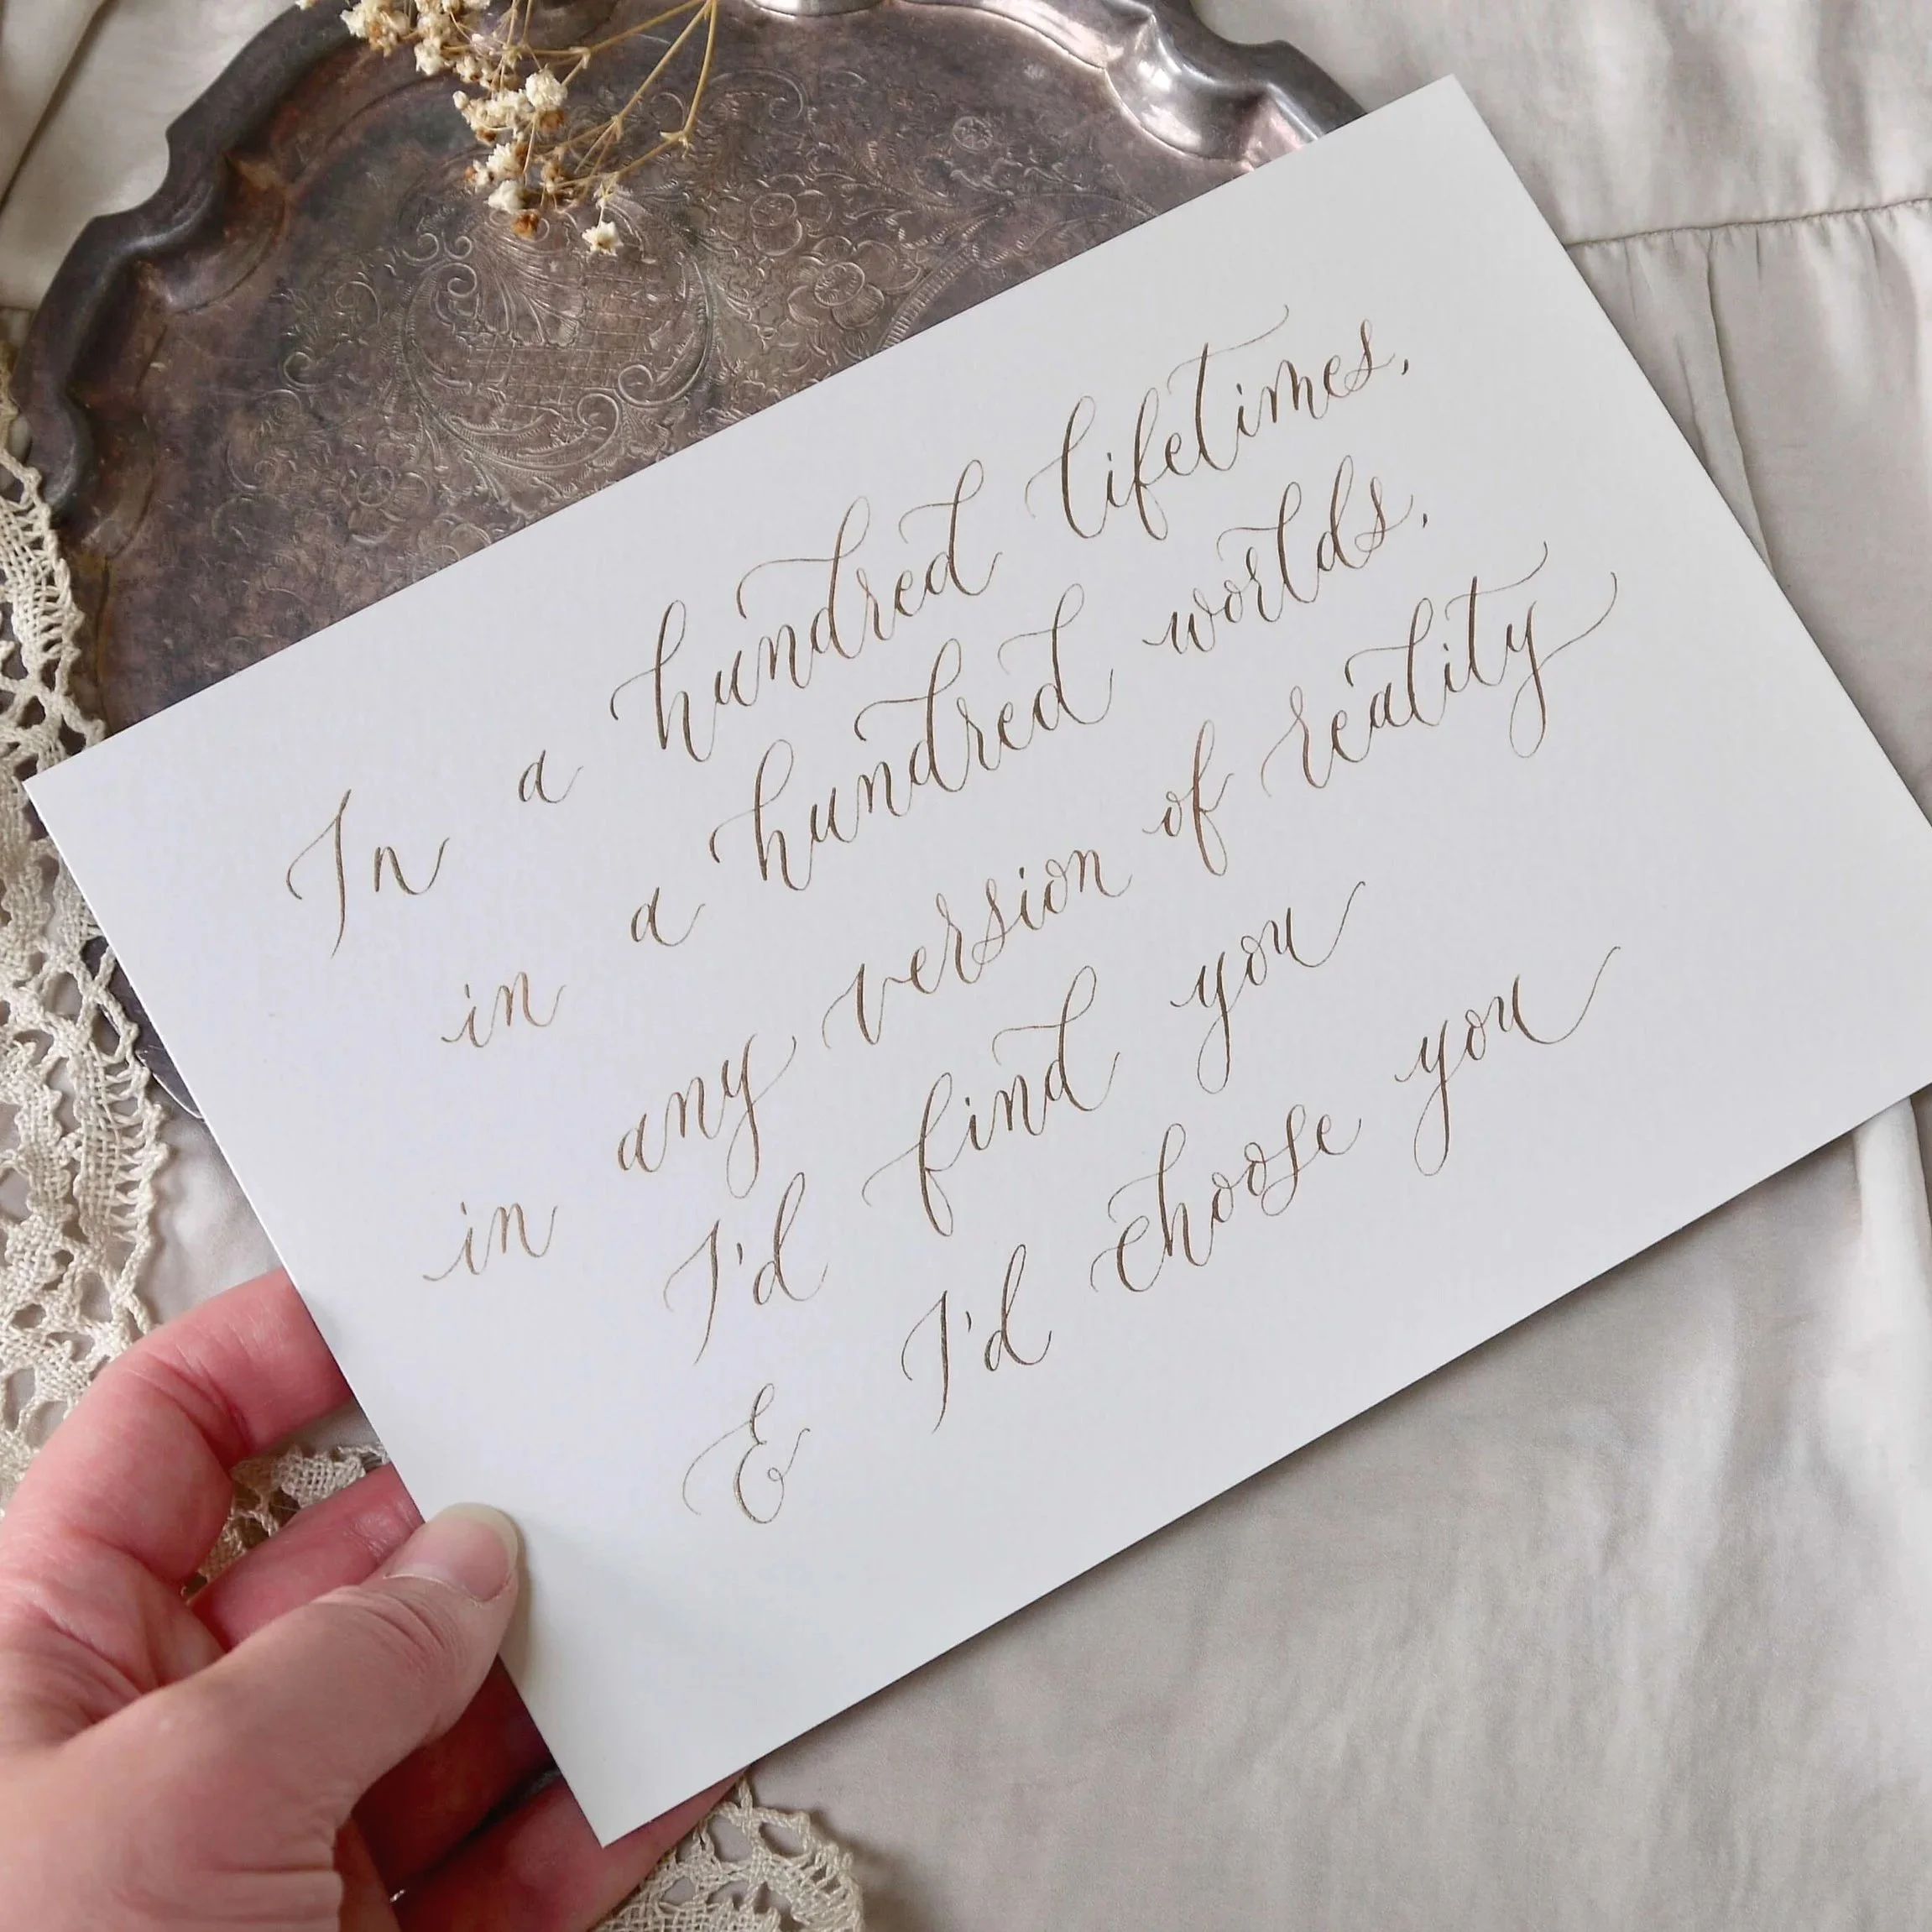 In a hundred lifetimes,
in a hundred worlds,
in any version of reality
I'd find you
& I'd choose you